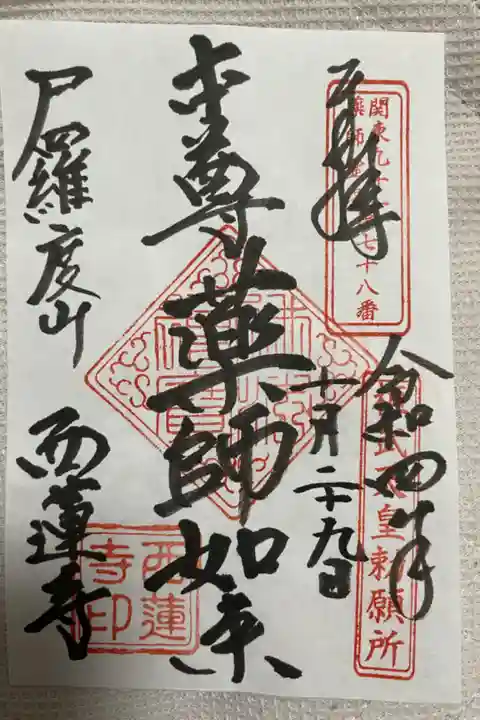 奉拝
関東九十一
薬師
七十八番
令和四年
十月二十九日
武天皇勅願所
本尊薬師如来
尸羅度山
西蓮寺
西蓮
寺印